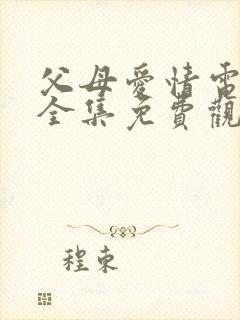 父母愛情電
全集免費觀
程東